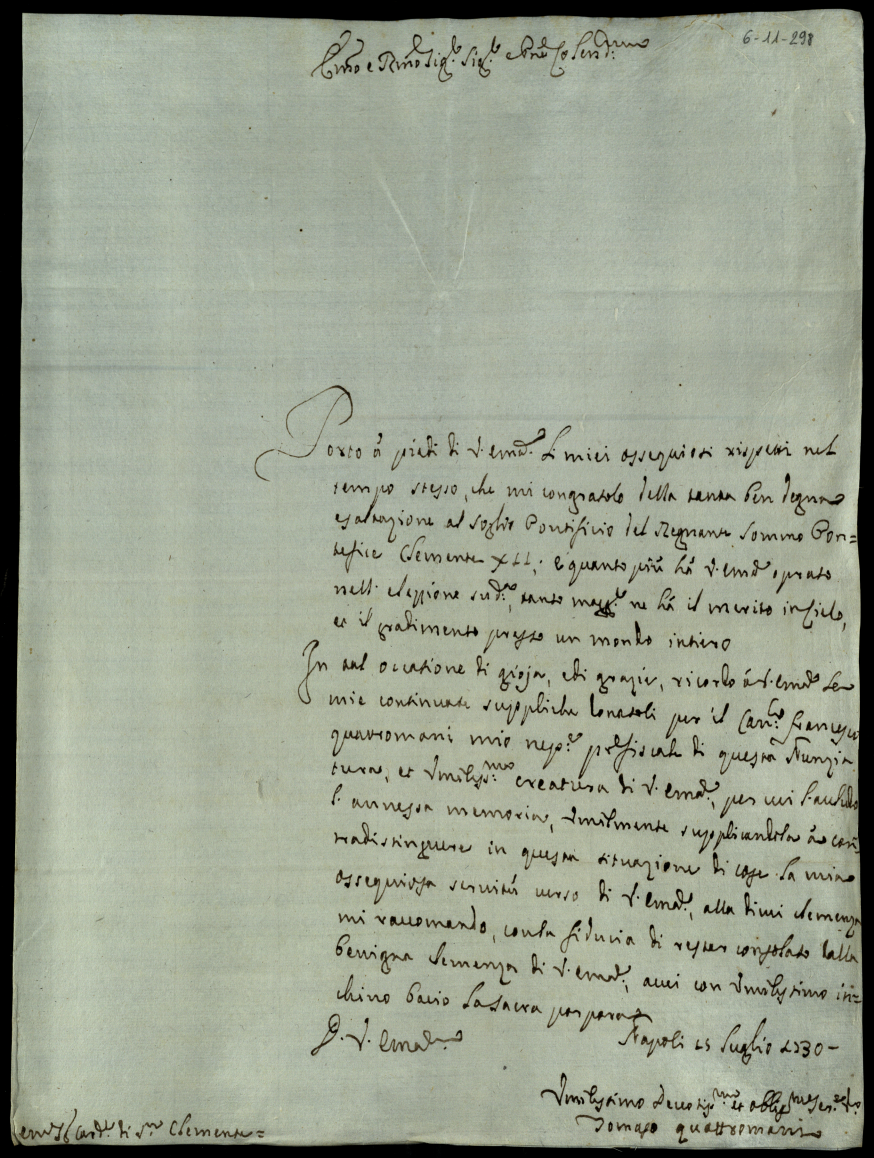 6-11-298
Emo e Rmo Sigre Sigre e Pne Colendmo
Porto à piedi di V. emza li miei ossequiosi rispetti nel
tempo stesso, che mi congratolo della tanta ben degna
esaltazione al Soglio Pontificio del Regnante Sommo Pon=
tefice Clemente XII; e quanto più hà V. emza oprato
nell'elezzione sudta, tanto maggre ne hà il merito in Cielo,
et il gradimento presso un mondo intiero
In tal occasione di gioja, e di grazie, ricordo à V. emza le
mie continuate suppliche donatoli per il Canco Francesco
quattromani mio nepte profiscale di questa Nunzia
tura, et Umilissmo creatura di V. emza, per cui l'accludo
l'annessa memoria, Umilmente supplicandola à con=
tradistinguere in questa situazione di cose la mia
ossequiosa servitù verso di V. emza, alla di cui Clemenza
mi raccomando, con la fiducia di restar consolato dalla
benigna Clemenza di V. emza, a cui con Umilissimo in=
chino bacio la Sacra porpora
D. V. Emza
Napoli 15 Luglio 1730-
Umilissimo Devotismo et obligmo Serre Vo
Tomaso quattromani
Cardle di Sn Clemente=